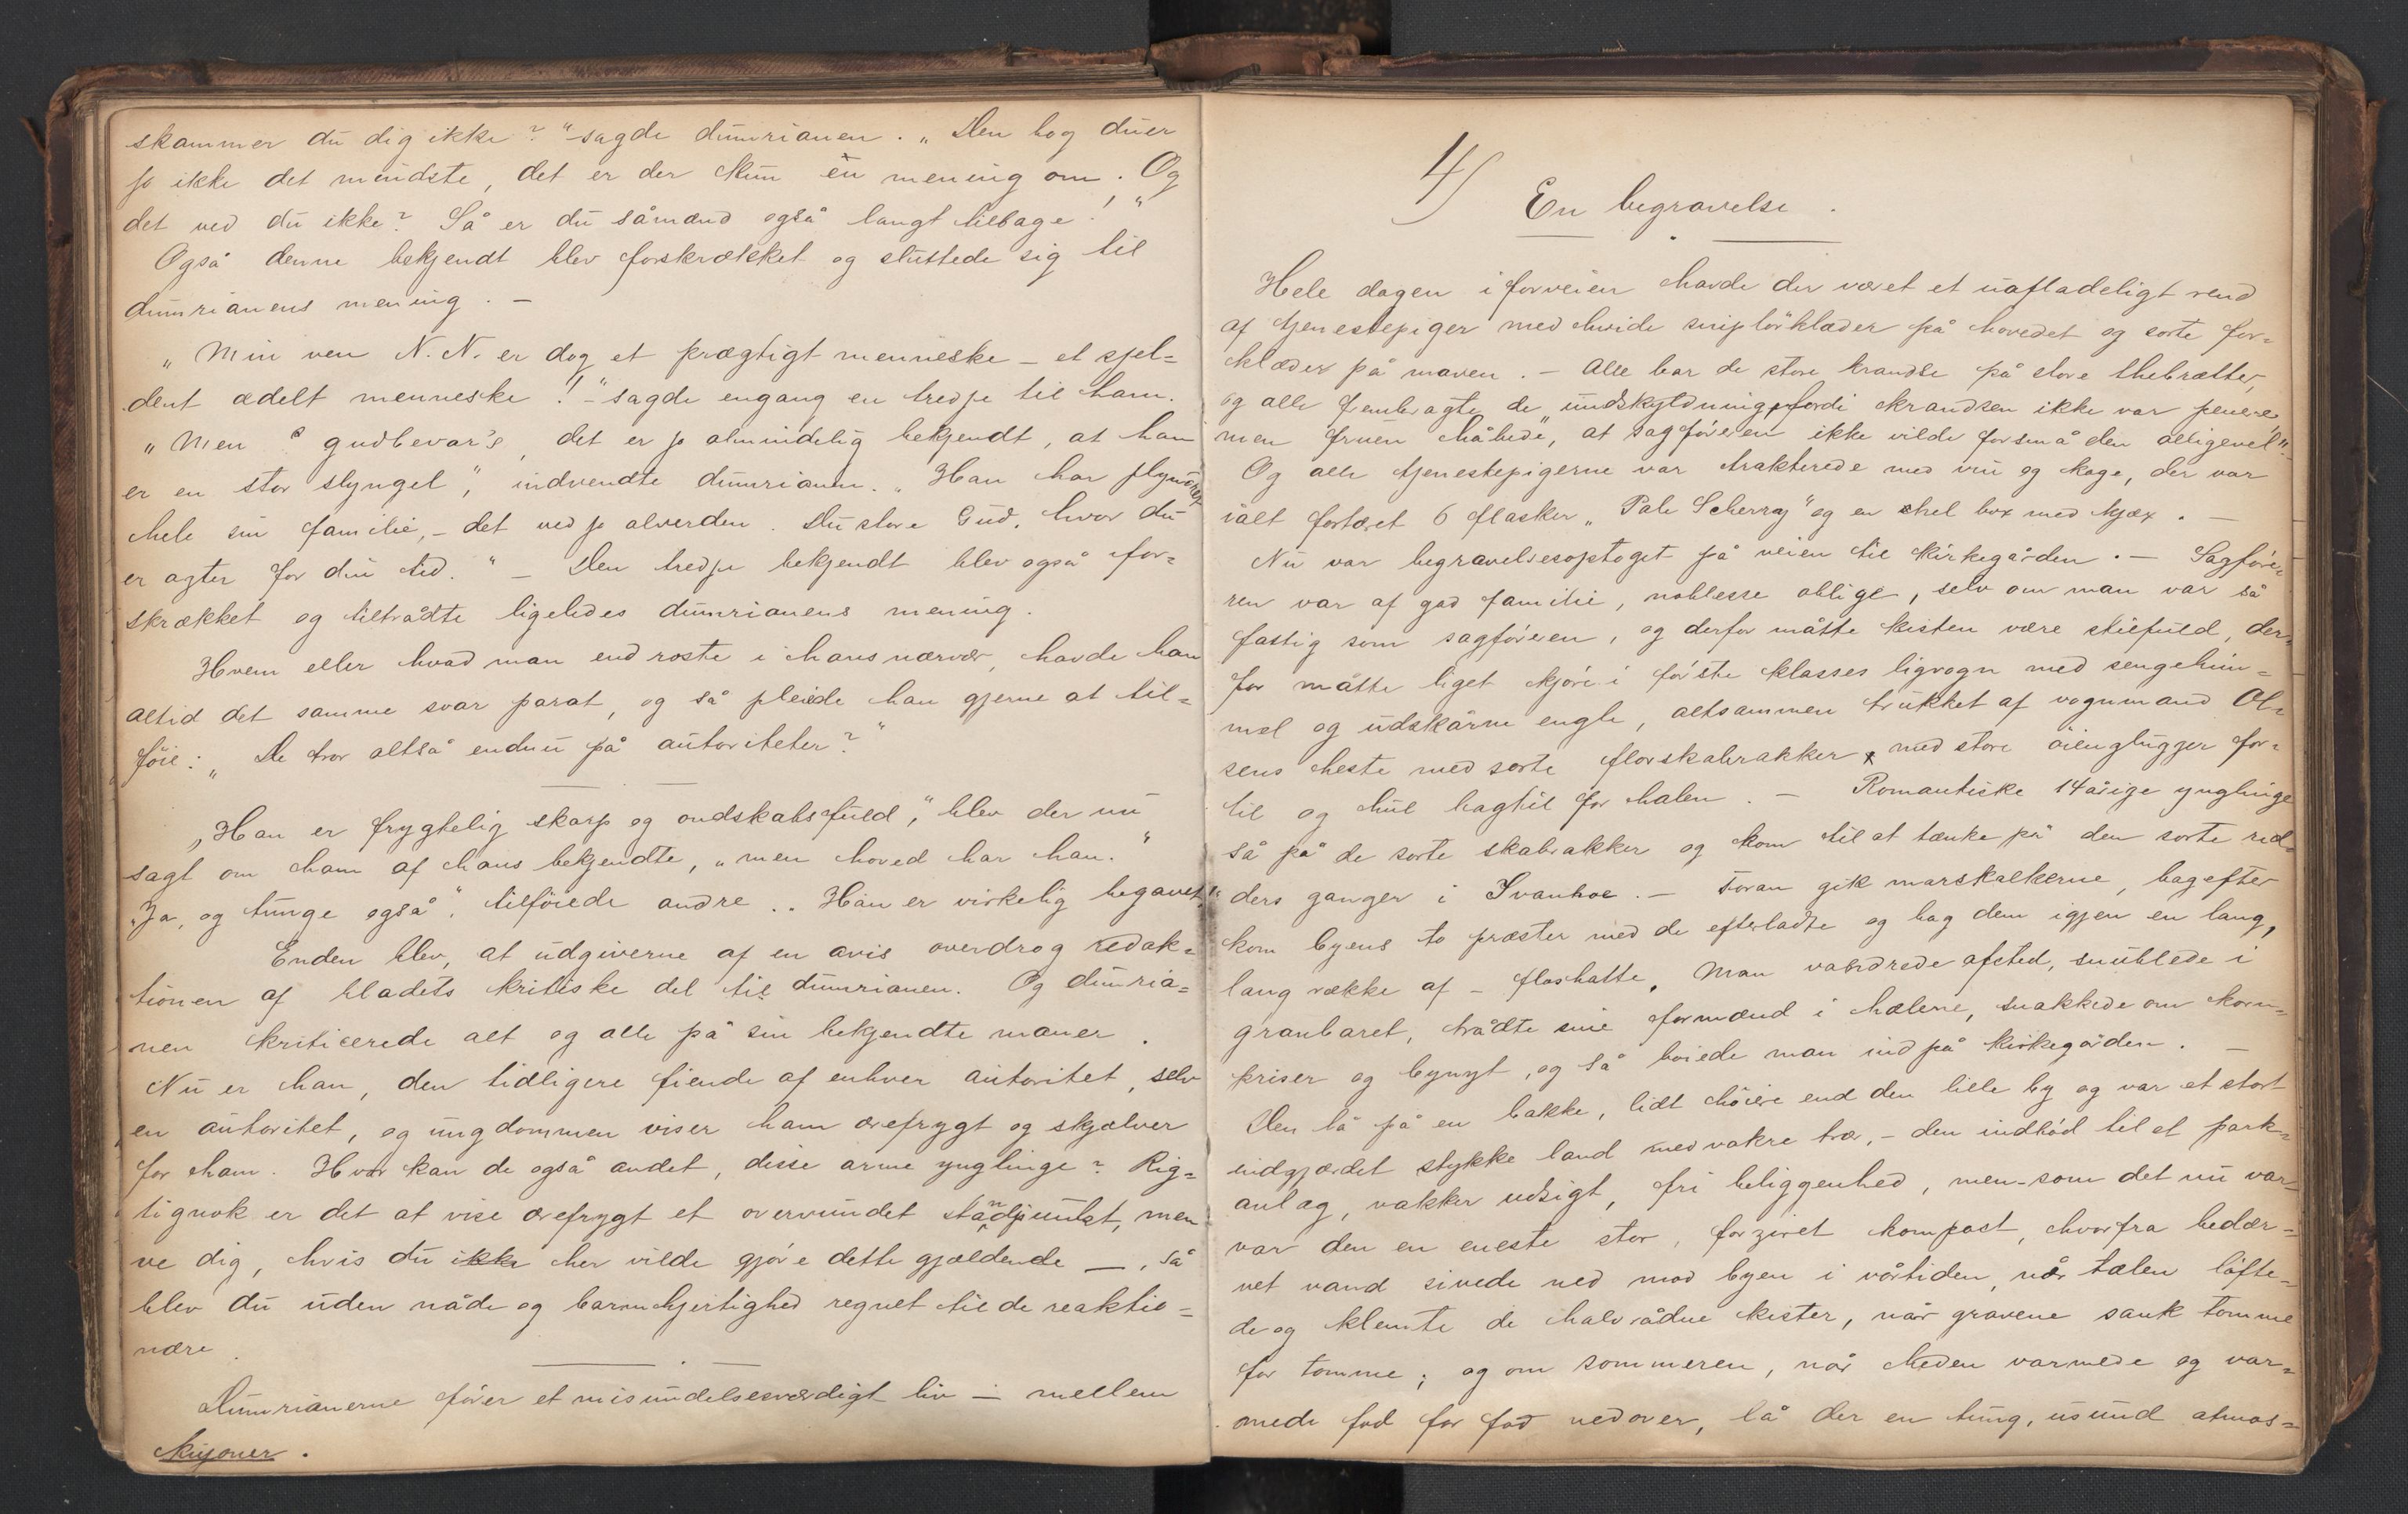 skammer du dig ikke?" - sagde dumrianen. „Den bog duer
jo ikke det mindste, det er der kun én mening om. Og
det ved du ikke? Så er du såmænd også langt tilbage!"
Også denne bekjendt blev forskrækket og sluttede sig til
dumrianens mening. —
„Min ven N. N. er dog et prægtigt menneske – et sjel=
dent ædelt menneske!" - sagde engang en tredje til ham.
„Men gudbevar's, det er jo almindelig bekjendt, at han
er en stor slyngel," indvendte dumrianen. „Han har plyndret
hele sin familie, – det ved jo alverden. Du store Gud, hvor du
er agter for din tid." – Den tredje bekjendt blev også for=
skrækket og tiltrådte ligeledes dumrianens mening.
Hvem eller hvad man end roste i hans nærvær, havde han
altid det samme svar parat, og så pleiede han gjerne at til=
føie: „De tror altså endnu på autoriteter?"
„Han er frygtelig skarp og ondskabsfuld," blev der nu
sagt om ham af hans bekjendte, „men hoved har han."
„Ja, og tunge også", tilføiede andre. „Han er virkelig begavet."
Enden blev, at udgiverne af en avis overdrog redak=
tionen af bladets kritiske del til dumrianen. Og dumria=
nen kriticerede alt og alle på sin bekjendte maner.
Nu er han, den tidligere fiende af enhver autoritet, selv
en autoritet, og ungdommen viser ham ærefrygt og skjælver
for ham. Hvor kan de også andet, disse arme ynglinge? Rig=
tignok er det at vise ærefrygt et overvundet standpunkt, men
ve dig, hvis du ikke her vilde gjøre dette gjældende —, så
blev du uden nåde og barmhjertighed regnet til de reaktio=
nære.
Dumrianerne fører et misundelsesværdigt liv – mellem
kujoner.
4)
En begravelse.
Hele dagen i forveien havde der været et uafladeligt rend
af tjenestepiger med hvide sniptörklæder på hovedet og sorte for=
klæder på maven. – Alle bar de store krandse på store thebrætter,
og alle frembragte de „undskyldning, fordi krandsen ikke var penere,
men fruen håbede, at sagføreren ikke vilde forsmå den alligevel". –
Og alle tjenestepigerne var trakterede med vin og kage, der var
ialt fortæret 6 flasker „Pale Scherry" og en hel box med kjæx. —
Nu var begravelsesoptoget på veien til kirkegården. — Sagføre=
ren var af god familie, noblesse oblige, selv om man var så
fattig som sagføreren, og derfor måtte kisten være stilfuld, der=
for måtte liget kjøre i første klasses ligvogn med sengehim=
mel og udskårne engle, altsammen trukket af vognmand Ol=
sens heste med sorte florskabrakker med store öiengluggger for=
til og hul bagtil for halen. — Romantiske 14 årige ynglinge
så på de sorte skabrakker og kom til at tænke på den sorte rid=
ders ganger i Ivanhoe. – Foran gik marskalkerne, bagefter
kom byens to præster med de efterladte og bag dem igjen en lang,
lang række af – floshatte. Man vandrede afsted, snublede i
granbaret, trådte sine formænd i hælene, snakkede om korn=
priser og bynyt, og så böiede man ind på kirkegården. —
Den lå på en bakke, lidt höiere end den lille by og var et stort
indgjærdet stykke land med vakre trær, – den indbød til et park=
anlæg, vakker udsigt, fri beliggenhed, men – som det nu var –
var den en eneste stor, forziret kompost, hvorfra bedær=
vet vand sivede ned mod byen i vårtiden, når tælen løfte=
de og klemte de halvrådne kister, når gravene sank tomme
for tomme; og om sommeren, når heden varmede og var=
mede fod for fod nedover, lå der en tung, usund atmos=